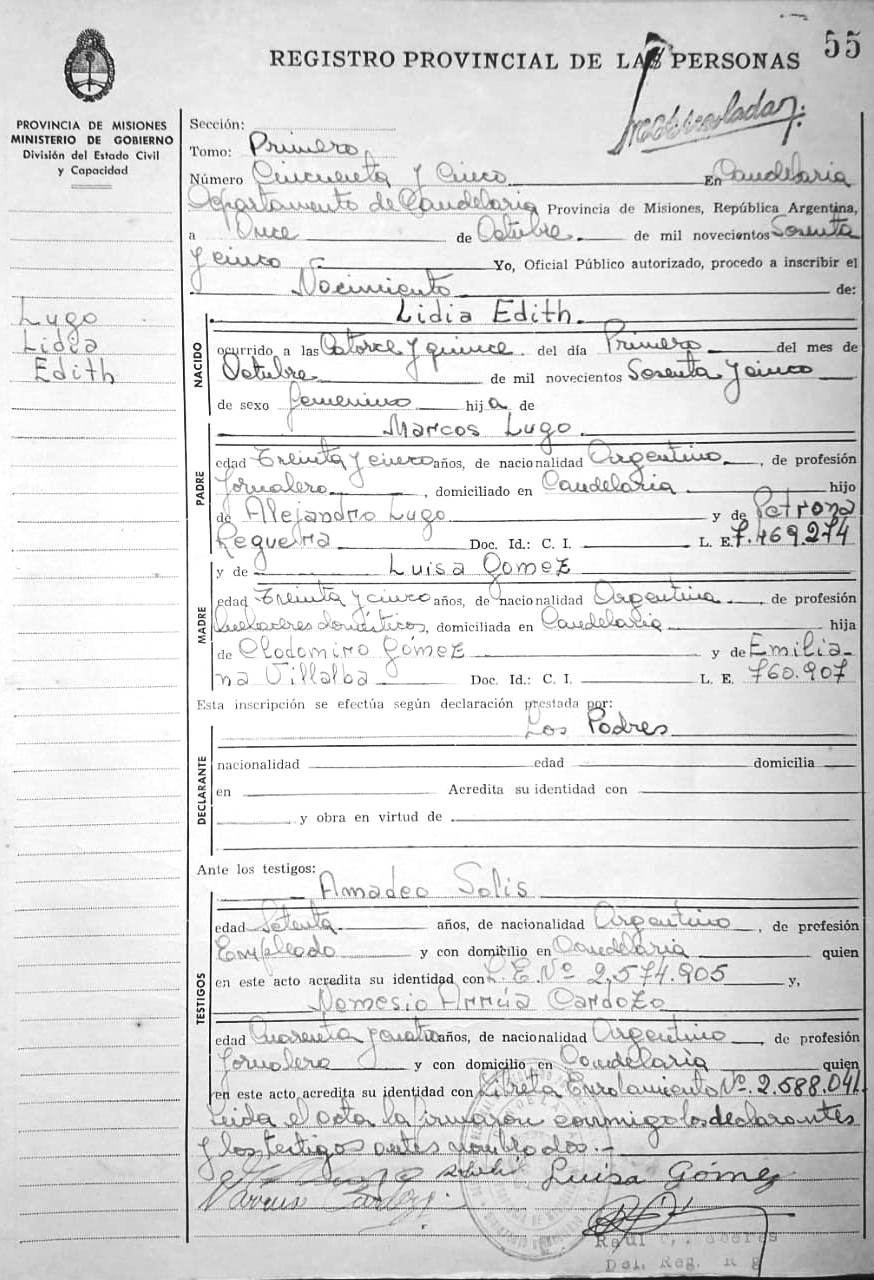 55
REGISTRO PROVINCIAL DE LAS PERSONAS
PROVINCIA DE MISIONES
MINISTERIO DE GOBIERNO
División del Estado Civil
y Capacidad
Sección:
Tomo: Primero
Número Cincuenta y Cinco En Candelaria
Departamento de Candelaria Provincia de Misiones, República Argentina,
a Once de Octubre de mil novecientos Sesenta
y cinco Yo, Oficial Público autorizado, procedo a inscribir el
Nacimiento de:
Lugo
Lidia
Edith
Lidia Edith
NACIDO
ocurrido a las Catorce y quince del día Primero del mes de
Octubre de mil novecientos Sesenta y cinco
de sexo femenino hija de
Marcos Lugo
PADRE
edad Treinta y cinco años, de nacionalidad Argentino, de profesión
Jornalero, domiciliado en Candelaria hijo
de Alejandro Lugo y de Petrona
Requeira Doc. Id.: C. I. L. E. 7.469.274
y de Luisa Gomez
MADRE
edad Treinta y cinco años, de nacionalidad Argentina, de profesión
quehaceres domésticos, domiciliada en Candelaria hija
de Clodomiro Gómez y de Emilia-
na Villalba Doc. Id.: C. I. L. E. 760.907
Esta inscripción se efectúa según declaración prestada por:
Los Padres
DECLARANTE
nacionalidad edad domicilia
en Acredita su identidad con
y obra en virtud de
Ante los testigos:
Amadeo Solis
TESTIGOS
edad Setenta años, de nacionalidad Argentino, de profesión
Empleado y con domicilio en Candelaria quien
en este acto acredita su identidad con L.E. Nº 2,574.905 y,
Nemesio Arrúa Cardozo
edad Cuarenta y cuatro años, de nacionalidad Argentino, de profesión
Jornalero y con domicilio en Candelaria quien
en este acto acredita su identidad con Libreta Enrolamiento Nº. 2.588.041
Leida el acta la firmaron conmigo los declarantes
y los testigos antes nombrados.-
Luisa Gómez
Del. Reg.